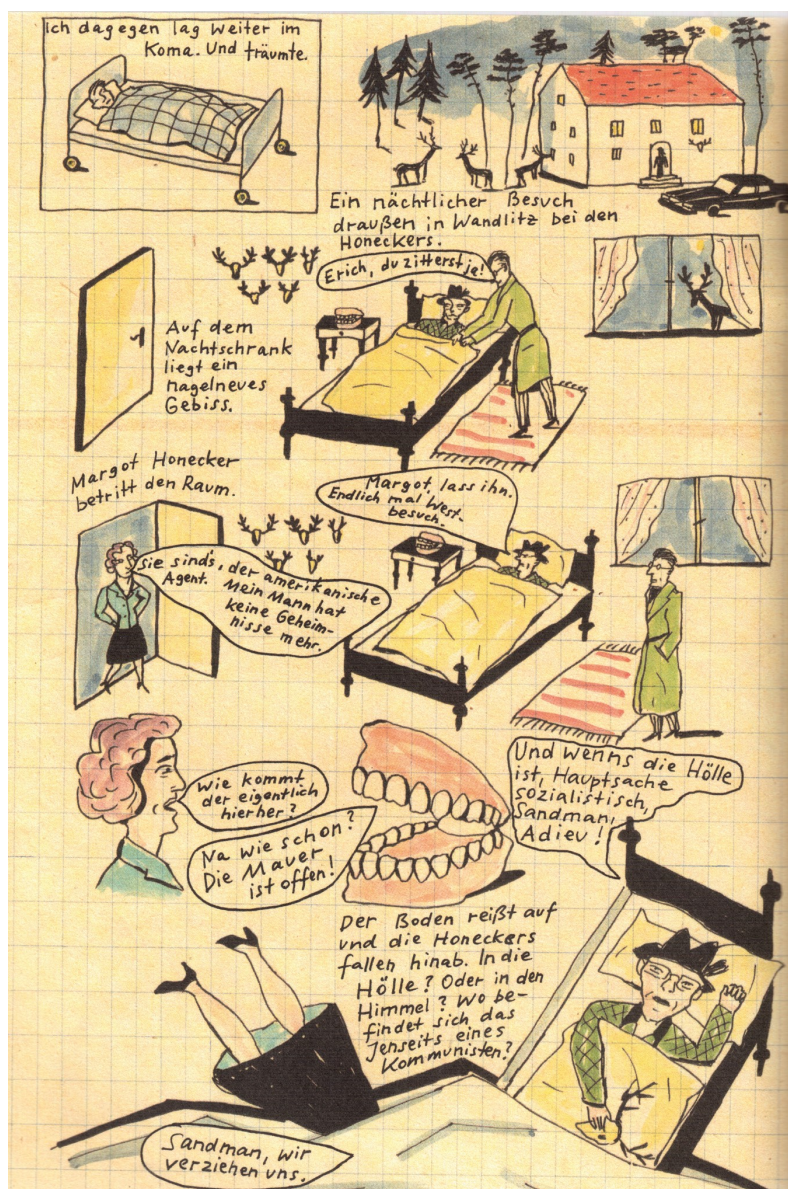 Ich dagegen lag weiter im
Koma. Und träumte.
Ein nächtlicher Besuch
draußen in Wandlitz bei den
Honeckers.
Erich, du zitterst ja!
Auf dem
Nachtschrank
liegt ein
nagelneues
Gebiss.
Margot Honecker
betritt den Raum.
Margot, lass ihn.
Endlich mal West-
besuch.
Sie sind's, der amerikanische
Agent. Mein Mann hat
keine Geheim-
nisse
mehr.
Wie kommt
der eigentlich
hierher?
Na wie schon?
Die Mauer
ist offen!
Und wenns die Hölle
ist, Hauptsache
sozialistisch,
Sandman,
Adieu!
Der Boden reißt auf
und die Honeckers
fallen hinab. In die
Hölle? Oder in den
Himmel? Wo be-
findet sich das
Jenseits eines
Kommunisten?
Sandman, wir
verziehen uns.